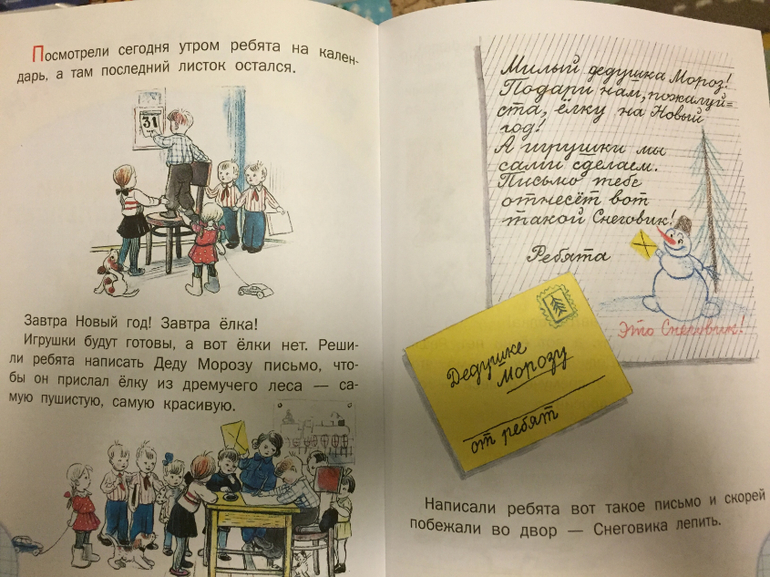 Посмотрели сегодня утром ребята на кален-
дарь, а там последний листок остался.
31
Завтра Новый год! Завтра ёлка!
Игрушки будут готовы, а вот ёлки нет. Реши-
ли ребята написать Деду Морозу письмо, что-
бы он прислал ёлку из дремучего леса — са-
мую пушистую, самую красивую.
Милый дедушка Мороз!
Подари нам, пожалуй=
ста, ёлку на Новый
год!
А игрушки мы
сами сделаем.
Письмо тебе
отнесёт вот
такой Снеговик!
Ребята
Это Снеговик!
Дедушке
Морозу
от ребят
Написали ребята вот такое письмо и скорей
побежали во двор — Снеговика лепить.